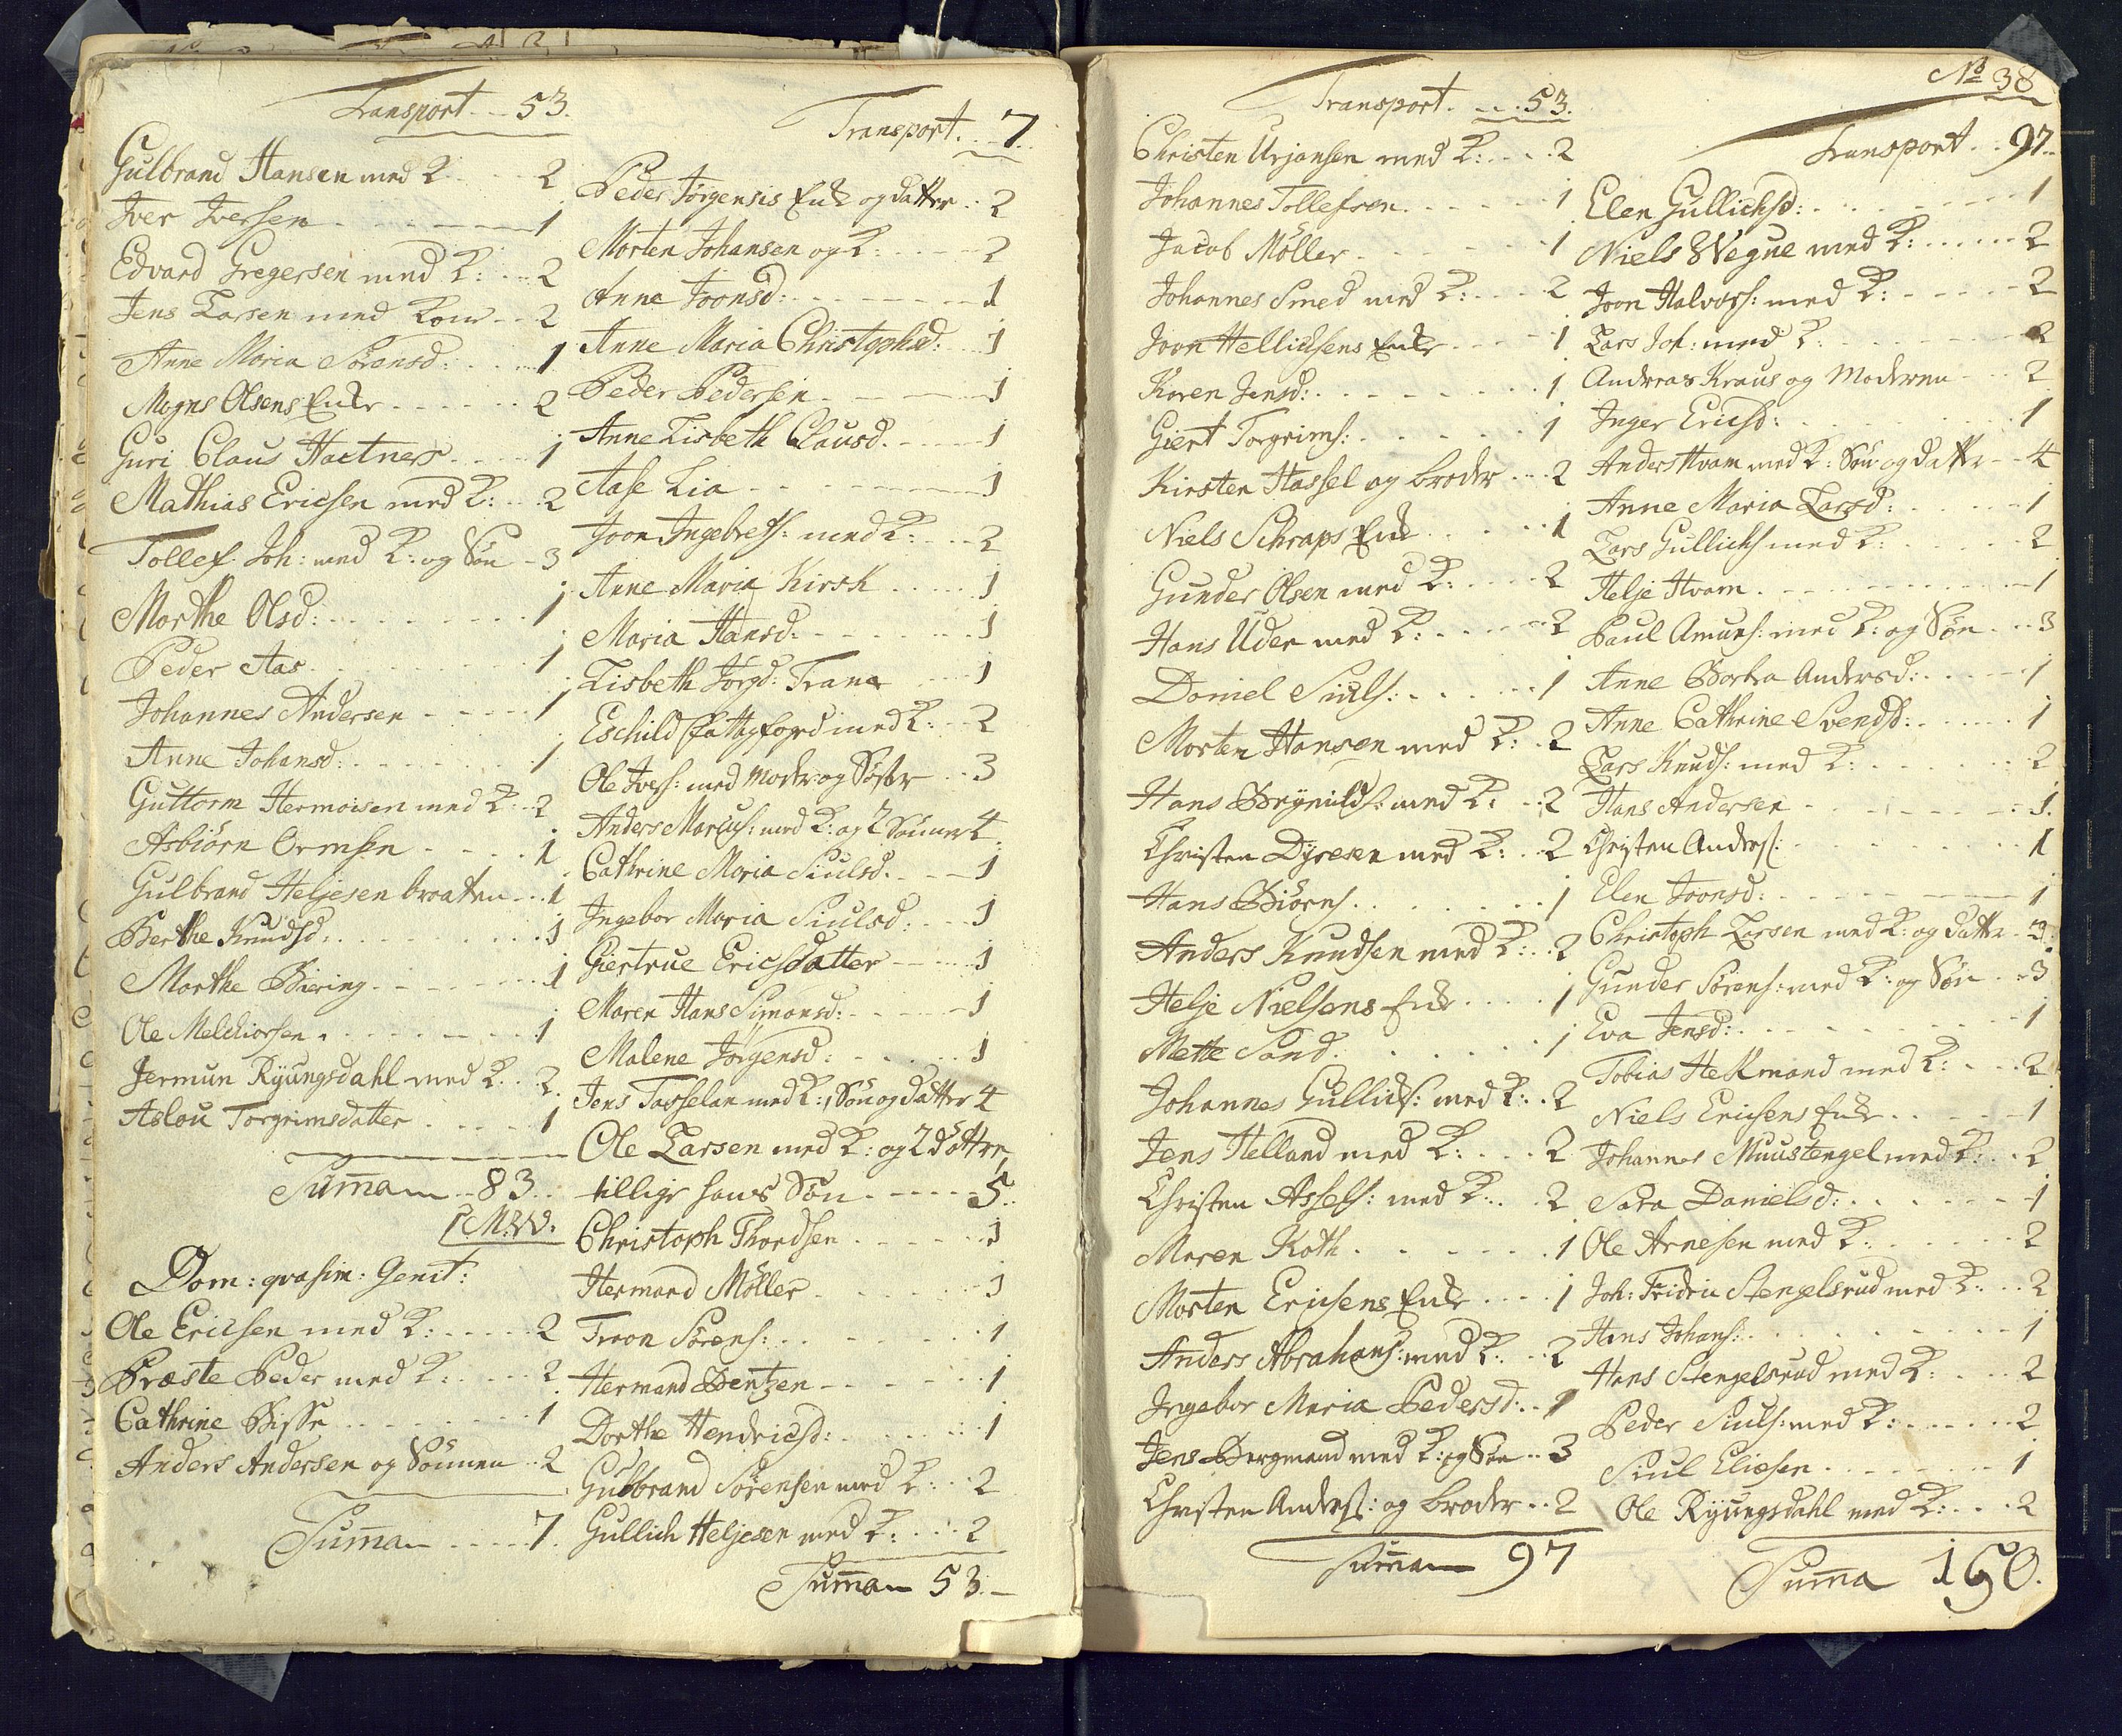 Transport - - 53.
Gulbrand Hansen med K - - - 2
Iver Iversen - - - - - 1
Edvard Gregersen med K: - - 2
Jens Larsen med Kone - - 2
Anne Maria Sörensd: - - - 1
Mogns Olsens Enke - - - - 2
Guri Claus Hactners - - - 1
Mathias Ericsen med K: - - 2
Tollef Joh: med K: og Sön - 3
Marthe Olsd: - - - - - 1
Peder Aas - - - - - 1
Johannes Andersen - - - - 1
Anne Johansd: - - - - - 1
Guttorm Hermoisen med K: - 2
Asbiörn Ormsen - - - - 1
Gulbrand Heljesen braaten - - 1
Berthe Knudsd: - - - - - 1
Marthe Biering - - - - - 1
Ole Melchiorsen - - - - - 1
Jermun Ryungsdahl med K. - 2
Aslou Torgrimsdatter - - - 1
Summa - - 83 -
Dom: qvasim: Genit:
Ole Ericsen med K: - - - - 2
Præste Peder med K: - - - 2
Cathrine Bisse - - - - - 1
Anders Andersen og Sönnen - 2
Summa - - - - 7.
Transport. - - 7.
Peder Jörgensis Enke og datter - - 2
Morten Johansen og K: - - - 2
Anne Joonsd: - - - - - 1
Anne Maria Christophd: - - 1
Peder Pedersen - - - - 1
Anne Lisbeth Clausd. - - - 1
Aase Lia - - - - - 1
Joon Ingebrets: med K: - - 2
Anne Maria Kirsk - - - - 1
Maria Hansd: - - - - - 1
Lisbeth Jörgd: Trane - - 1
Eschild med K: - - 2
Ole Ivers: med Moder og Söster - - 3
Anders Marcus: med K: og 2 Sönner 4
Cathrine Maria Siulsd. - - - 1
Ingebor Maria Siulsd: - - - 1
Giertrue Ericsdatter - - - 1
Maren Hans Simonsd: - - - - 1
Malene Jörgensd: - - - - 1
Jens Tasselan med K:, Sön og datter 4
Ole Larsen med K: og 2 döttre,
tillige hans Sön - - - - 5.
Christoph Thordsen - - - - 1
Hermand Möller - - - - - 1
Troon Sörens: - - - - - 1
Hermand Bentzen - - - - - 1
Dorthe Hendricsd: - - - - 1
Gubbrand Sörensen med K: - - 2
Gullich Heljesen med K: - - - 2
Summa 53. -
No 38
Transport. - - 53.
Christen Urjansen med K: - - - 2
Johannes Tollefsen - - - - 1
Jacob Möller - - - - - 1
Johannes Smed med K: - - - 2
Joon Hellichsens Enke - - - 1
Karen Jensd: - - - - - 1
Giert Torgrims: - - - - - 1
Kirsten Hassel og broder - - - 2
Niels Schraps Enke - - - - 1
Gunder Olsen med K: - - - - 2
Hans Uden med K: - - - - 2
Daniel Siuls: - - - - - 1
Morten Hansen med K: - 2
Hans Brynilds: med K: - - 2
Christen Dyresen med K: - - 2
Hans Biörns - - - - - 1
Anders Knudsen med K: - - 2
Helje Nielsens Enke - - - - 1
Mette Sand - - - - - - 1
Johannes Gullichs: med K: - - 2
Jens Helland med K: - - - - 2
Christen Assels: med K: - - 2
Maren Koth - - - - - - 1
Morten Ericsens Enke - - - - 1
Anders Abrahams: med K: - - 2
Ingebor Maria Pedersd: - - 1
Jens Bergmand med K: og Sön - - 3
Christen Anders: og broder - - 2
Summa 97
Transport - - 97.
Elen Gullichsd: - - - - - 1
Niels Wegne med K: - - - - - 2
Joon Halvors: med K: - - - - - 2
Lars Joh: med K: - - - - - 2
Andreas Kraus og Moderen - - - 2
Inger Ericsd: - - - - - - 1
Anders Hvam med K: Sön og datter - - 4
Anne Maria Larsd: - - - - - 1
Lars Gullichs med K: - - - - 2
Helje Hvam - - - - - - 1
Paul Amunds: med K: og Sön - - - 3
Anne Barbra Andersd: - - - - 1
Anne Cathrine Svendsd: - - - - - 1
Lars Knuds: med K: - - - - - 2
Hans Andersen - - - - - - 1.
Christen Anders: - - - - - - 1
Elen Joonsd: - - - - - - 1
Christoph Larsen med K: og datter - 3.
Gunder Sörens: med K: og Sön - - 3
Eva Jensd: - - - - - - 1
Tobias Hekmand med K: - - - 2
Niels Ericsens Enke - - - - - 1
Johannes Muustengel med K: - - 2
Sara Danielsd: - - - - - - 1
Ole Arnesen med K: - - - - - 2
Joh: Fridric Stengelsrud med K: - - 2
Hans Johans: - - - - - - 1
Hans Stengelsrud med K: - - - - 2
Peder Siuls: med K: - - - - - 2
Siul Eliesen - - - - - - 1
Ole Ryungsdahl med K: - - - 2
Summa 150.